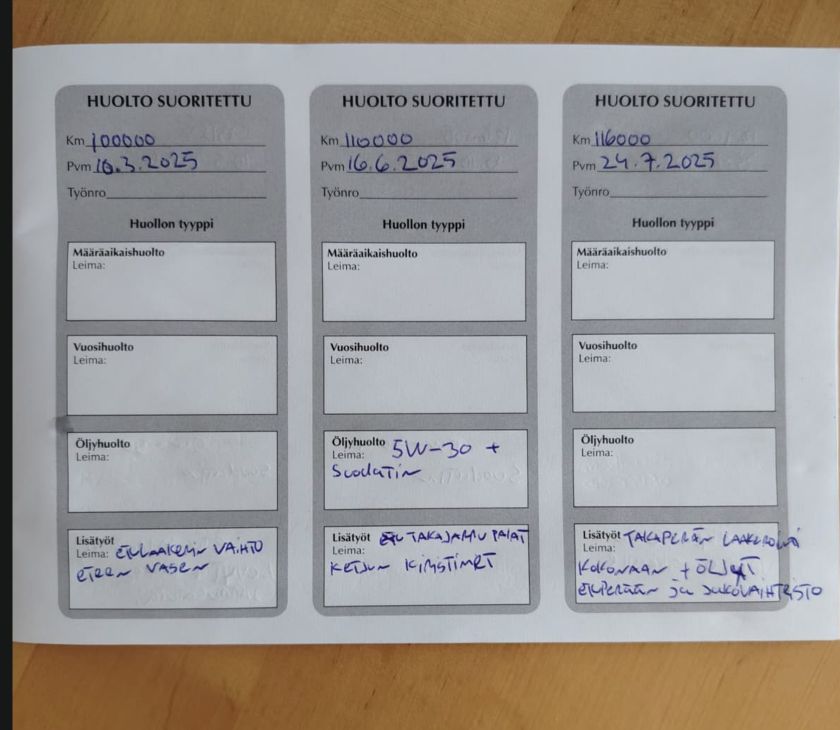 HUOLTO SUORITETTU
Km 100000
Pvm 10.3.2025
Työnro
Huollon tyyppi
Määräaikaishuolto
Leima:
Vuosihuolto
Leima:
Öljyhuolto
Leima:
Lisätyöt
Leima: ETULAAKERIN VAIHTO
ETEEN VASEN
HUOLTO SUORITETTU
Km 110000
Pvm 16.6.2025
Työnro
Huollon tyyppi
Määräaikaishuolto
Leima:
Vuosihuolto
Leima:
Öljyhuolto 5W-30 +
Leima:
Suodatin
Lisätyöt TAKAJARRU PALAT
Leima:
KETJUN KIRISTIMET
HUOLTO SUORITETTU
Km 116000
Pvm 24.7.2025
Työnro
Huollon tyyppi
Määräaikaishuolto
Leima:
Vuosihuolto
Leima:
Öljyhuolto
Leima:
Lisätyöt TAKAPERÄN LAAKEROINTI
Leima:
KOKONAAN + ÖLJYT
ETUPERÄÄN ja JAKOVAIHTEISTO